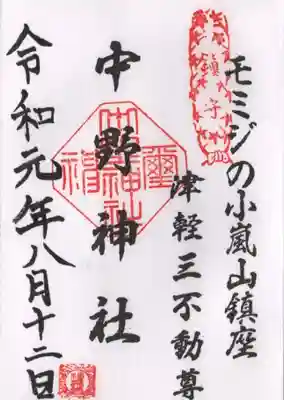 モミジの小嵐山鎮座
津軽三不動尊
中野神社
令和元年八月十二日